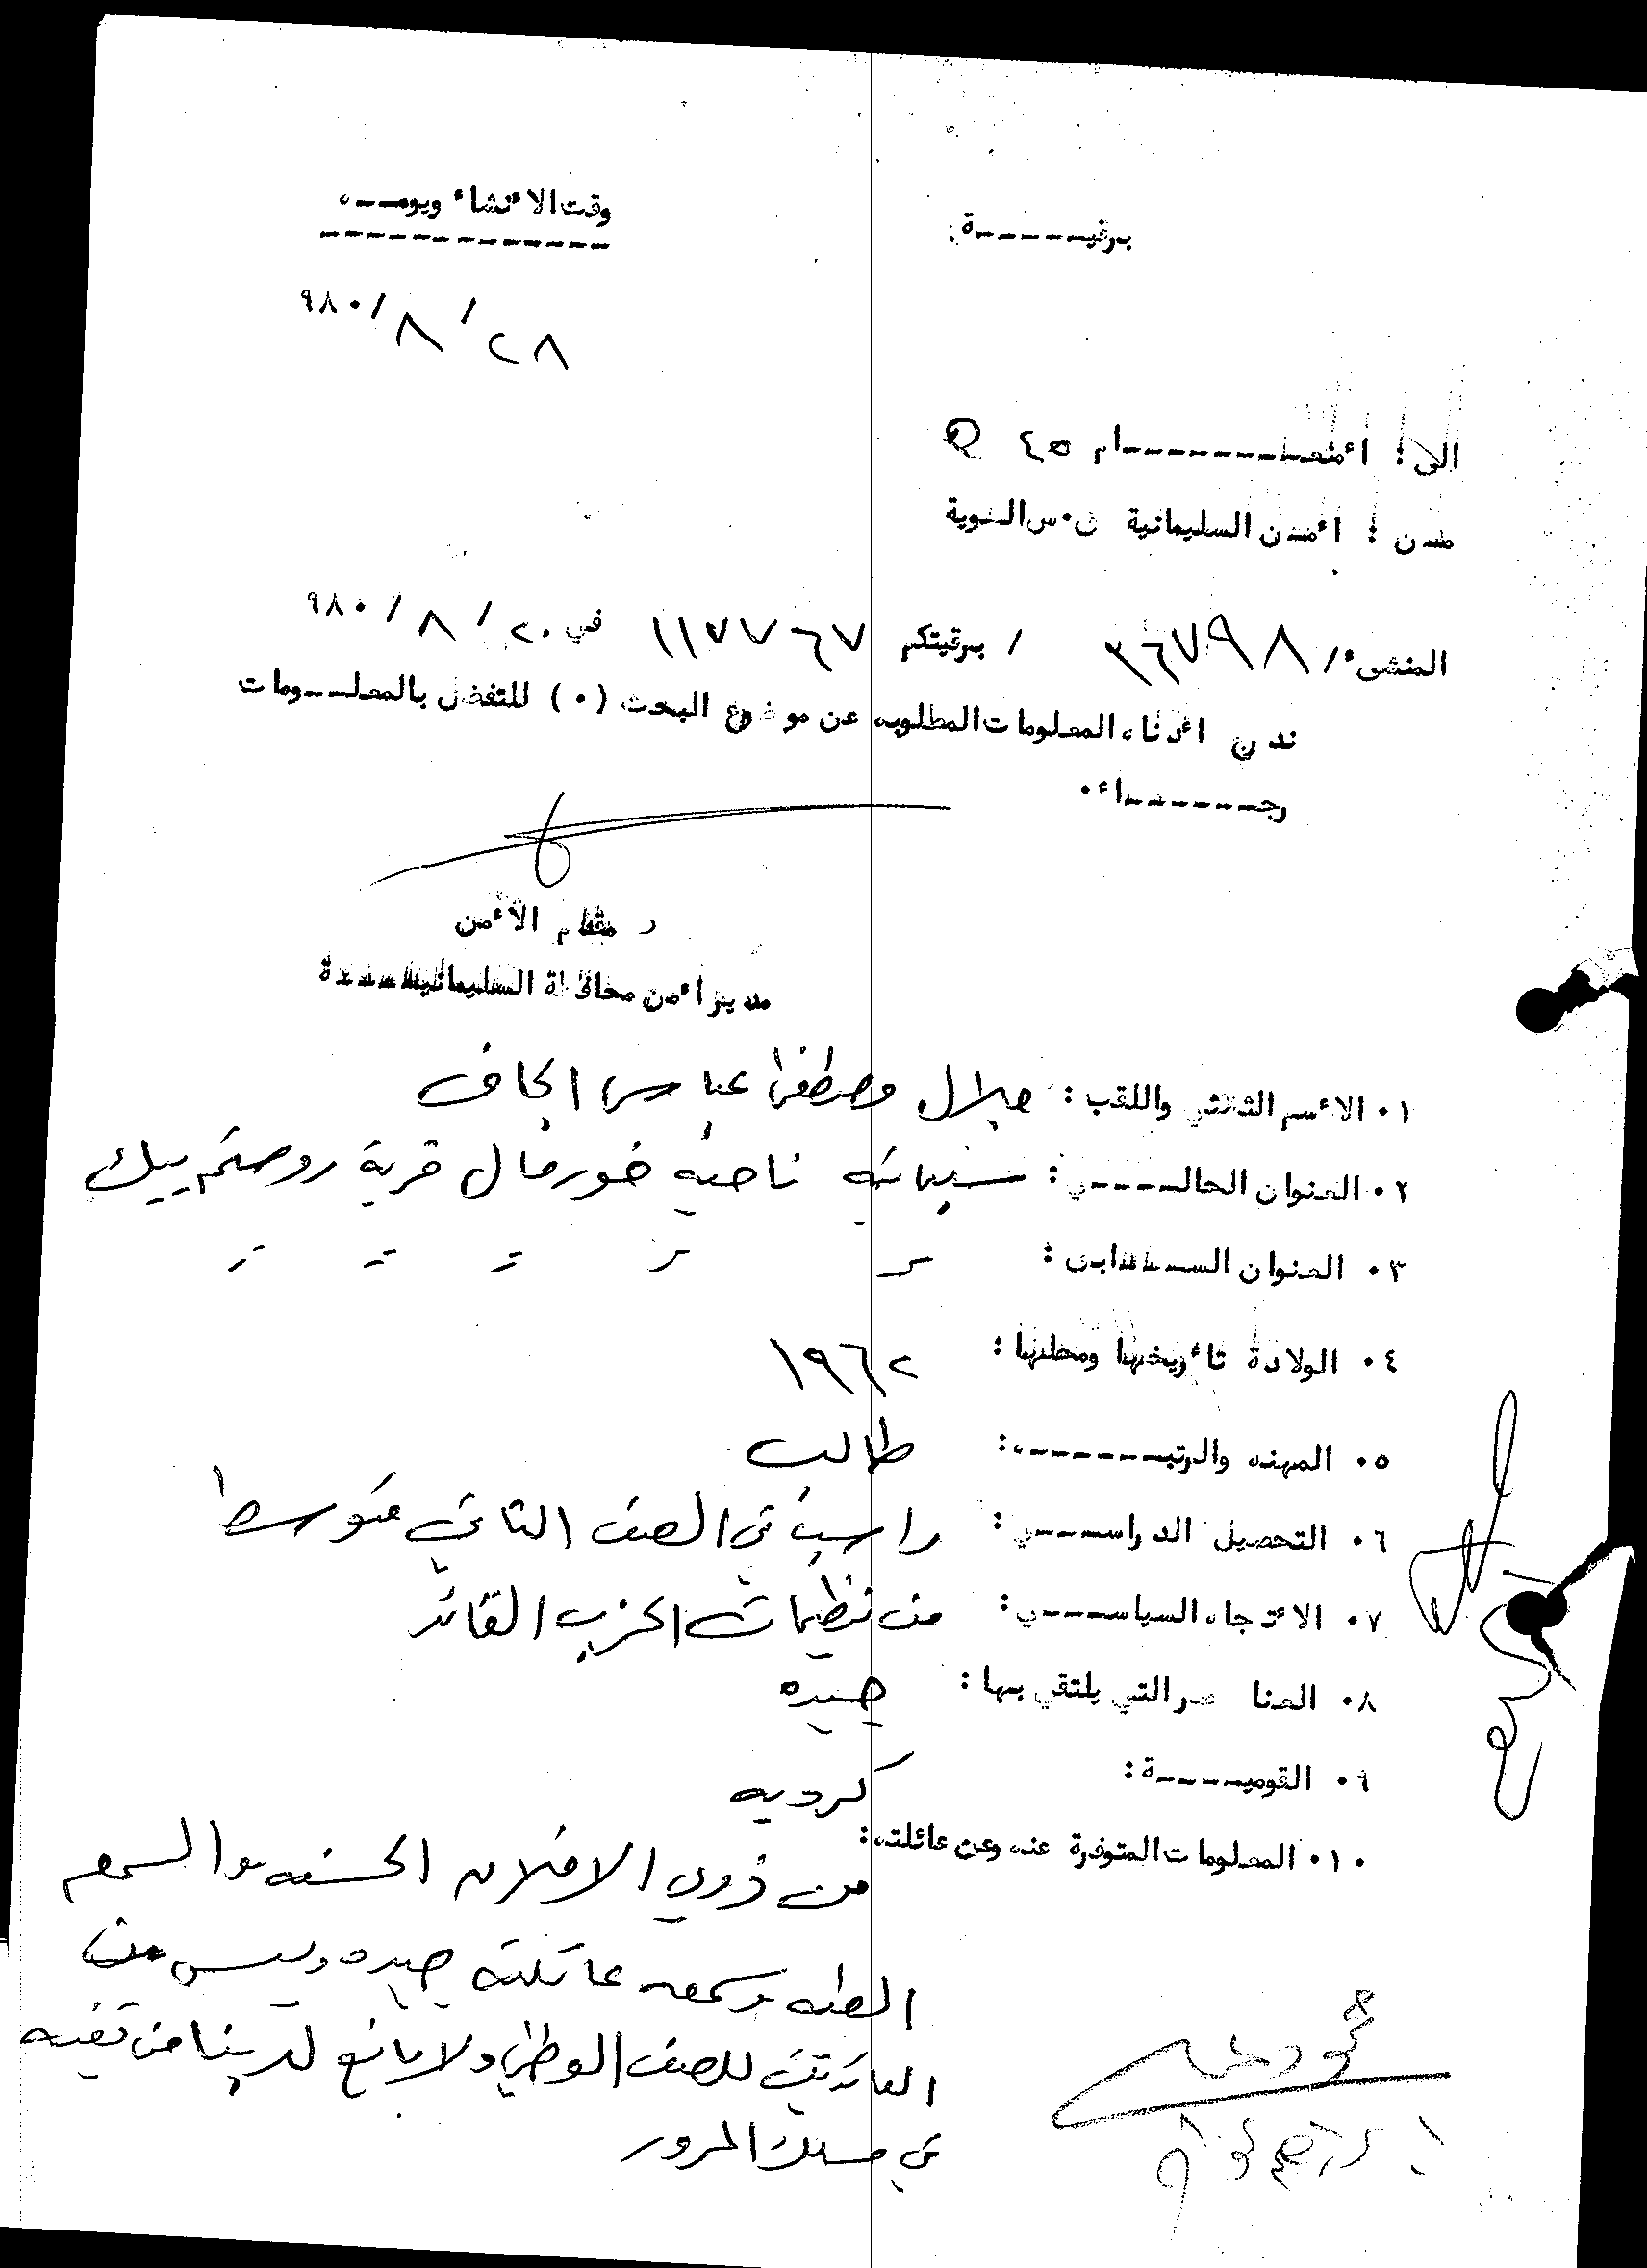 برقيــــــة
وقت الائنشاء ويومــه
٩٨٠/٨/٢٨
الى : ائمنــــــــام ٤٥
من : ائمن السليمانية ش٠س السنوية
المنشىء/ ٣٦٧٩٨ / برقيتكم ١١٧٧٦٧ في ٩٨٠/٨/٢٠
ندرج ائدناه المعلومات المطلوبه عن موضوع البحث (٠) للتفضل بالمعلـــومات
رجــــــاء٠
مقدم الائمن
مدير ائمن محافظة السليمانيــــة
٠١ الائسم الثلاثي واللقب : جلال مصطفى عباس الجاف
٠٢ العنوان الحالــــي : سليمانيه ناحية خورمال قرية روستم بيك
٠٣ العنوان الســـابق : = = = = =
٠٤ الولادة تائريخها ومحلها : ١٩٦٢
٠٥ المهنه والرتبــــــه : طالب
٠٦ التحصيل الدراســــي : راسب في الصف الثاني متوسط
٠٧ الائتجاه السياســــي : من تنظيمات الحزب القائد
٠٨ العناصر التي يلتقي بها : جيده
٠٩ القوميـــــة : كرديه
٠١٠ المعلومات المتوفرة عنه وعن عائلته :
من ذوي الاخلاق الحسنه والسمعه
الطيبه وسمعه عائلته جيده وليس من
العائدين للصف الوطني ولا مانع لدينا من تعينه
في مسلك المرور